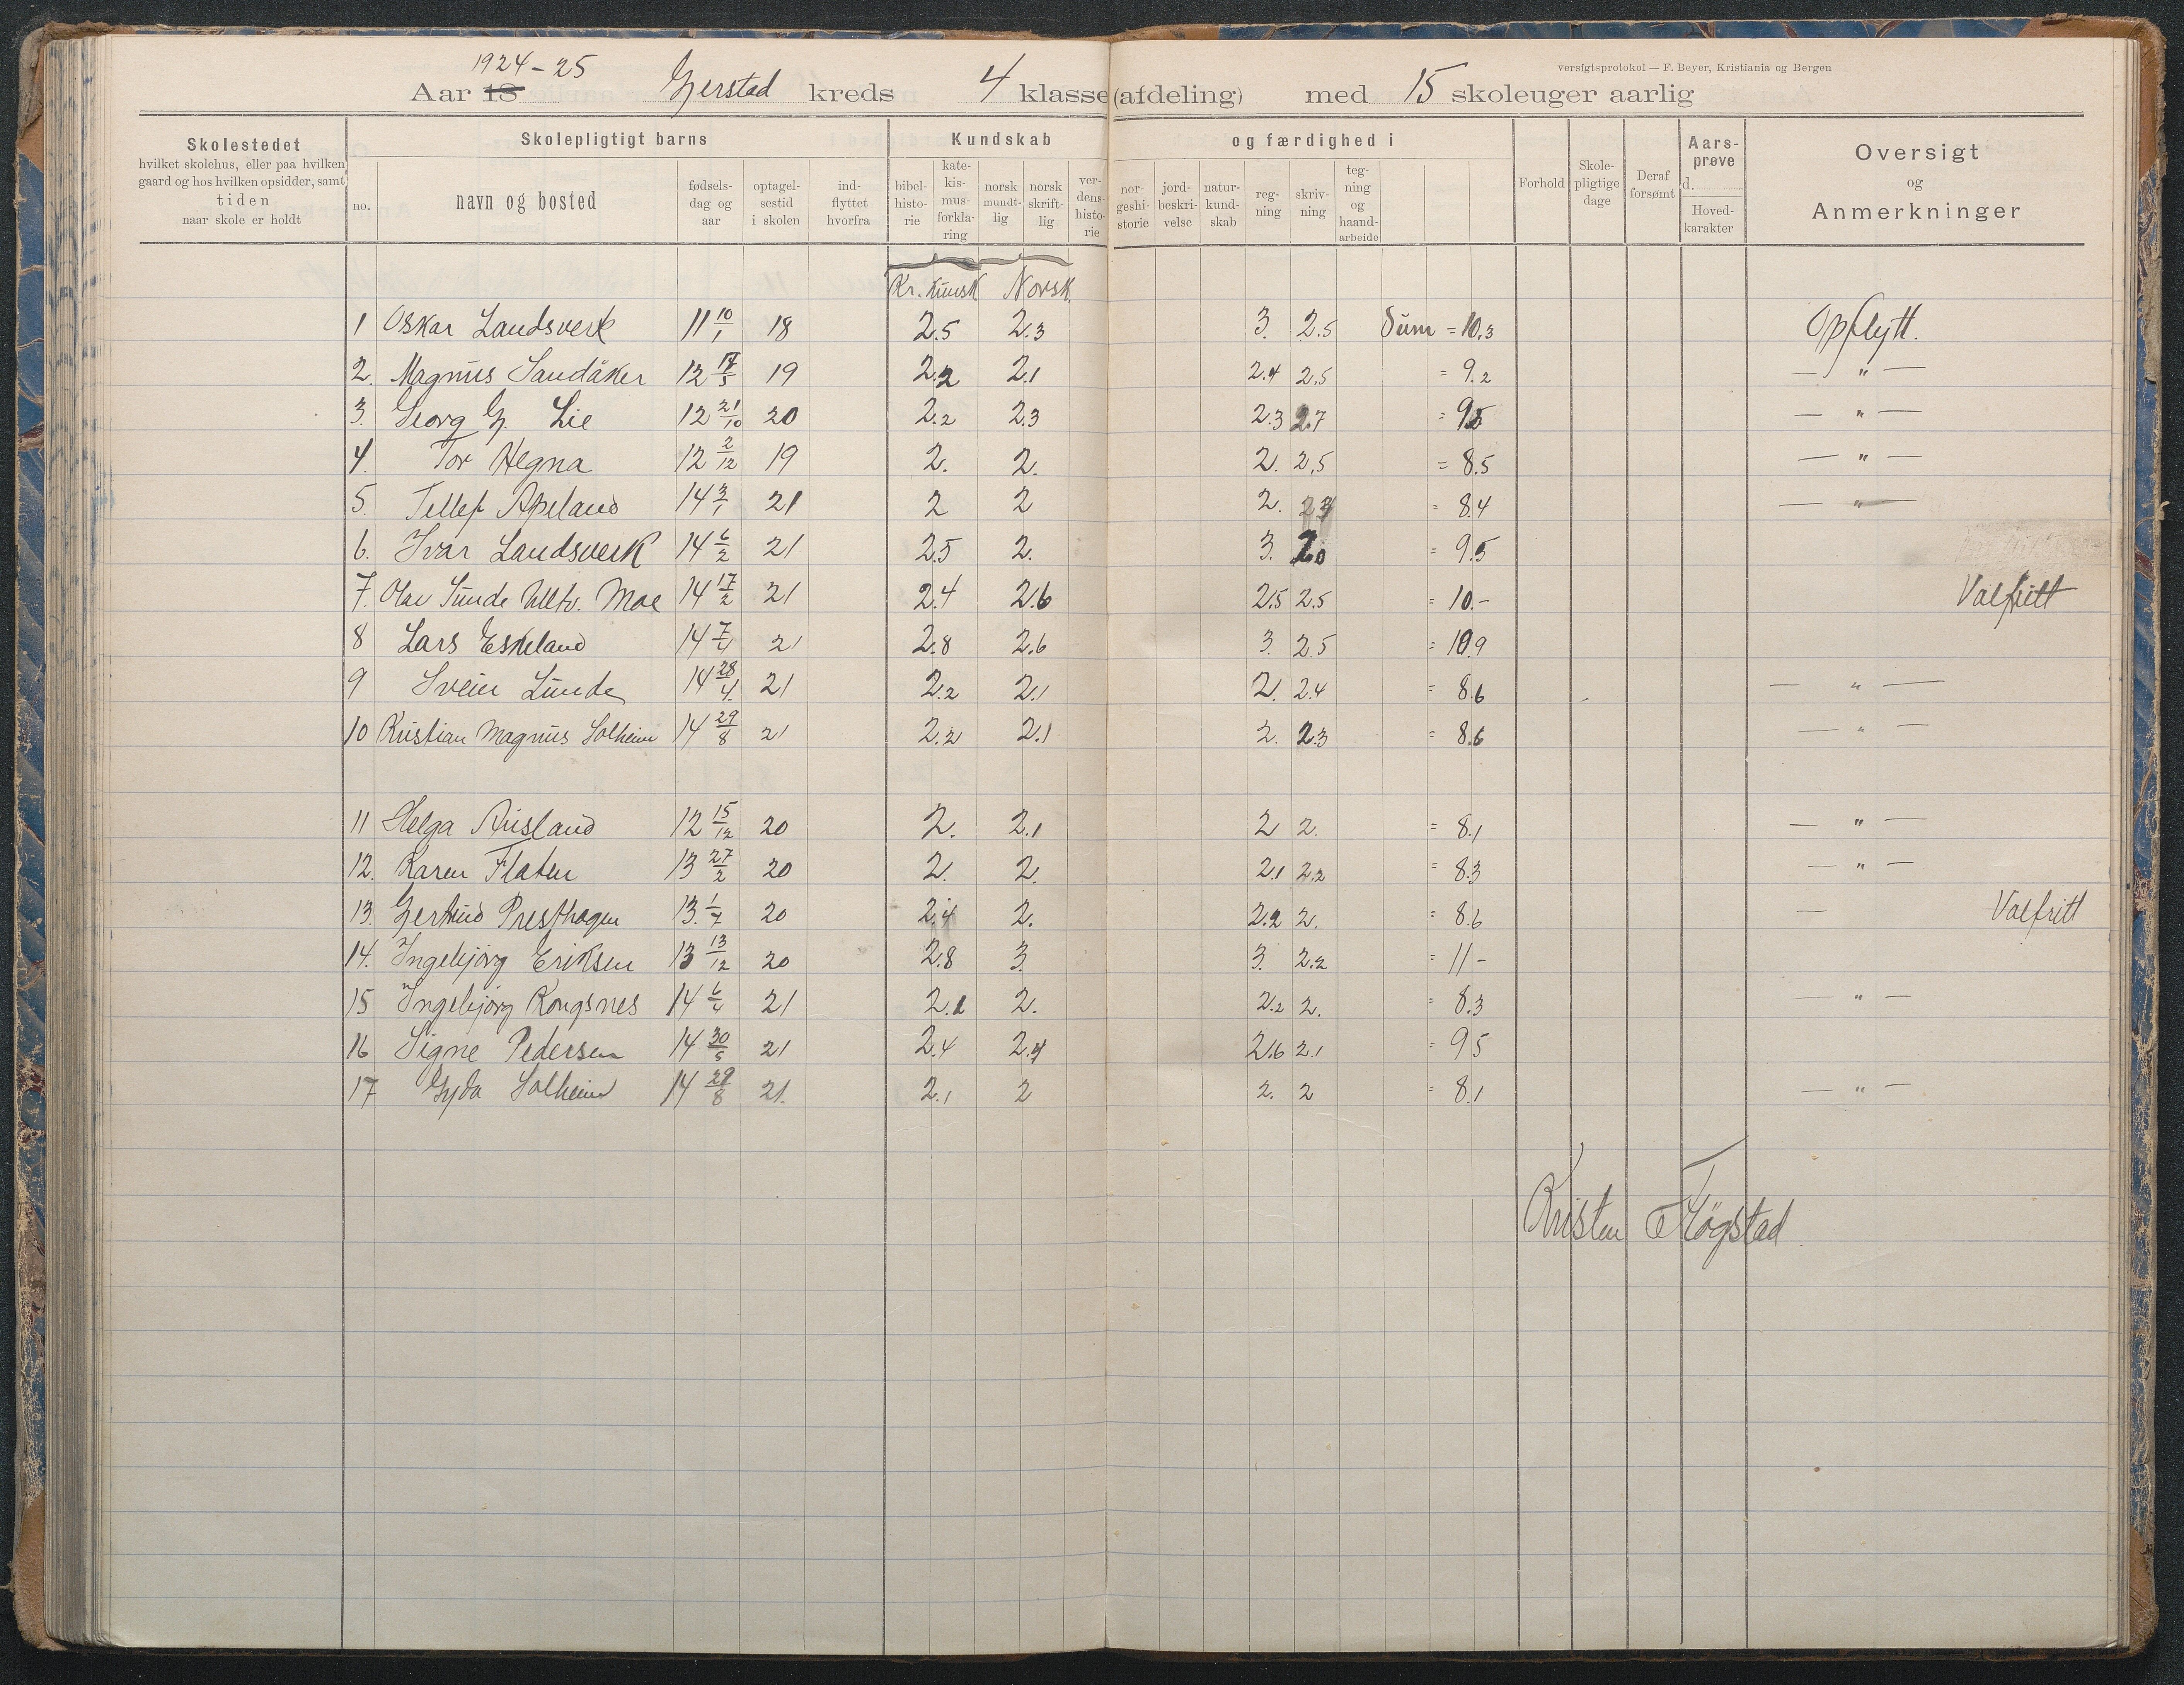 1924-25
versigtsprotokol — F. Beyer, Kristiania og Bergen
Aar 18 Gjerstad kreds 4 klasse (afdeling) med 15 skoleuger aarlig
Skolestedet hvilket skolehus, eller paa hvilken gaard og hos hvilken opsidder, samt tiden naar skole er holdt
Skolepligtigt barns
no. navn og bosted fødselsdag og aar optagelsestid i skolen indflyttet hvorfra
Kundskab og færdighed i
bibelhistorie katekismusforklaring norsk mundtlig norsk skriftlig verdenshistorie norgeshistorie jordbeskrivelse naturkundskab regning skrivning tegning og haandarbeide
Forhold Skolepligtige dage Deraf forsømt Aarsprøve d. Hovedkarakter
Oversigt og Anmerkninger
Kr. kunsk Norsk.
1 Oskar Landsverk 11 10/1 18 2.5 2.3 3. 2.5 Sum = 10.3 Opflytt.
2. Magnus Sandåker 12 17/5 19 2.2 2.1 2.4 2.5 = 9.2 — " —
3. Georg G. Lie 12 21/10 20 2.2 2.3 2.3 2.7 = 9.5 — " —
4. Tor Hegna 12 2/12 19 2. 2. 2. 2.5 = 8.5 — " —
5. Tellef Apeland 14 3/1 21 2 2 2. = 8.4 — " —
6. Ivar Landsverk 14 6/2 21 2.5 2. 3. 2.0 = 9.5
7. Olav Sunde Moe 14 17/2 21 2.4 2.6 2.5 2.5 = 10.- Valfritt
8 Lars Eskeland 14 7/4 21 2.8 2.6 3. 2.5 = 10.9
9 Svein Lunde 14 28/4 21 2.2 2.1 2. 2.4 = 8.6 — " —
10 Kristian Magnus Solheim 14 29/8 21 2.2 2.1 2. 2.3 = 8.6 — " —
11 Helga Ausland 12 15/12 20 2. 2.1 2 2. = 8.1 — " —
12. Karen Flaten 13 27/2 20 2. 2. 2.1 2.2 = 8.3 — " —
13. Gertrud Presthagen 13. 1/7 20 2.4 2. 2.2 2. = 8.6 — Valfritt
14. Ingebjørg Eriksen 13 13/12 20 2.8 3. 3. 2.2 = 11 -
15 Ingebjørg Rongsnes 14 6/4 21 2.1 2. 2.2 2. = 8.3 — " —
16 Signe Pedersen 14 30/5 21 2.4 2.4 2.6 2.1 = 9.5
17 Gyda Solheim 14 29/8 21. 2.1 2 2. 2 = 8.1 — " —
Kristen Fløgstad